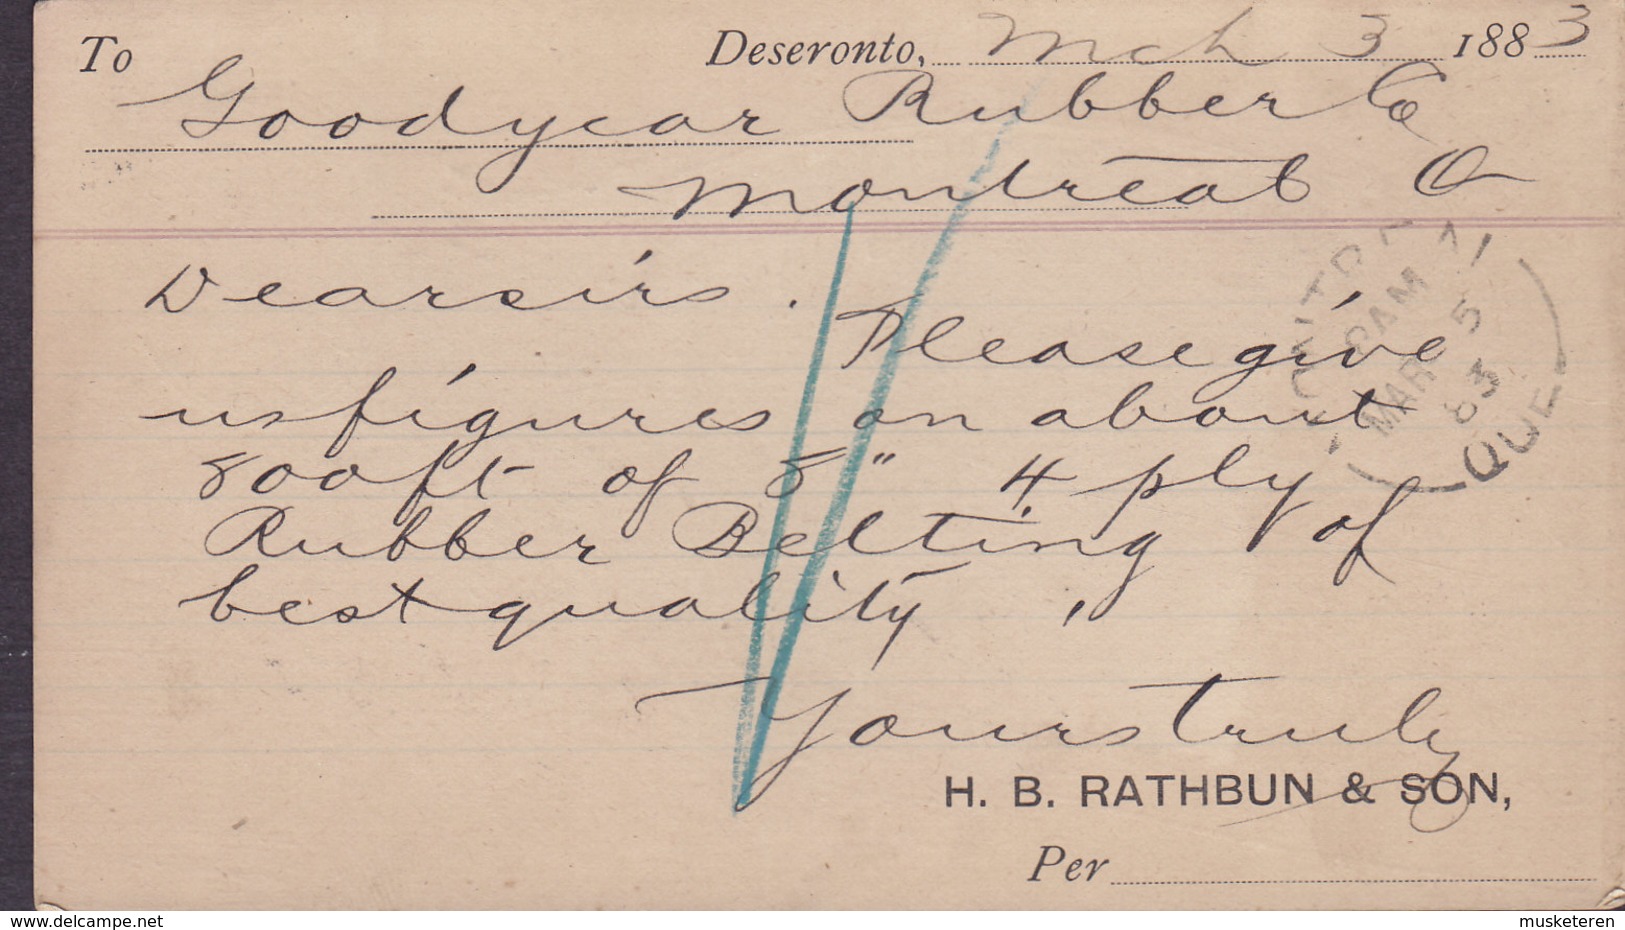 To Deseronto, Mch 3 1883
Goodyear Rubber Co
Montreal Q
Dear sirs. Please give
us figures on about
800 ft of 8" 4 ply
Rubber Belting of
best quality,
Yours truly
H. B. RATHBUN & SON,
Per
MONTREAL
8 AM
MAR 5
83
QUE
www.delcampe.net
musketeren